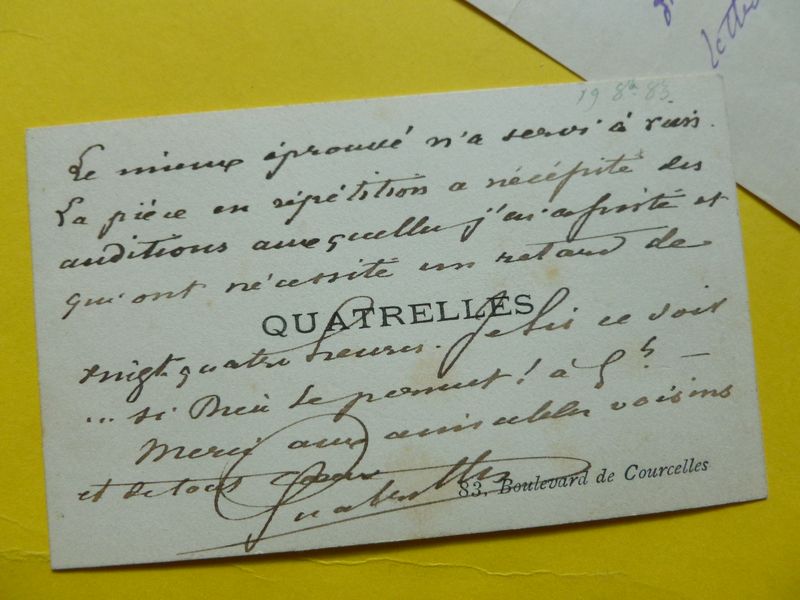 19 8bre 83
Le mieux éprouvé n'a servi à rien.
La pièce en répétition a nécéssité des
auditions auxquelles j'ai assisté et
qui ont nécessité un retard de
QUATRELLES
vingt-quatre heures. Je lis ce soir
... si Dieu le permet ! à 5h —
Merci aux aimables voisins
et de tout cœur
Quatrelles
83, Boulevard de Courcelles